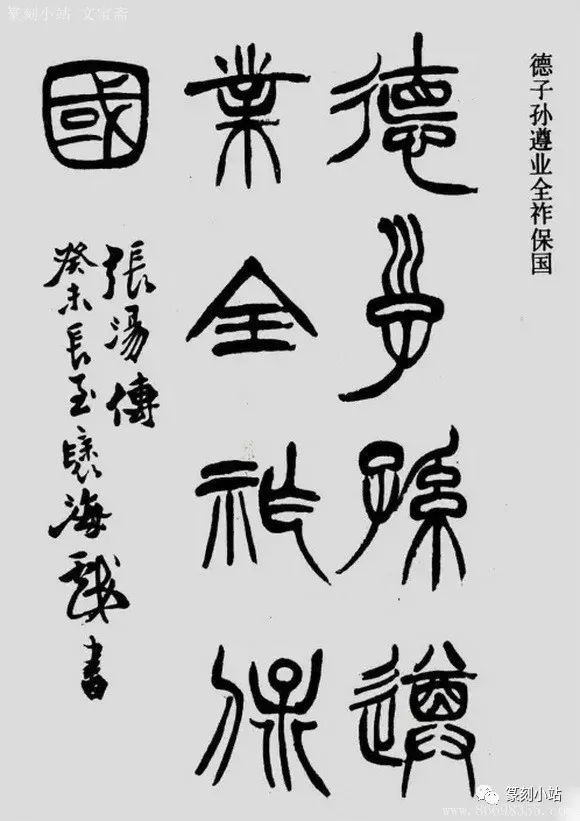 篆刻小站 文宝斋
德子孙遵业全祚保国
德子孫遵
業全祚保
國
張湯傳
癸未長至海戲書
篆刻小站